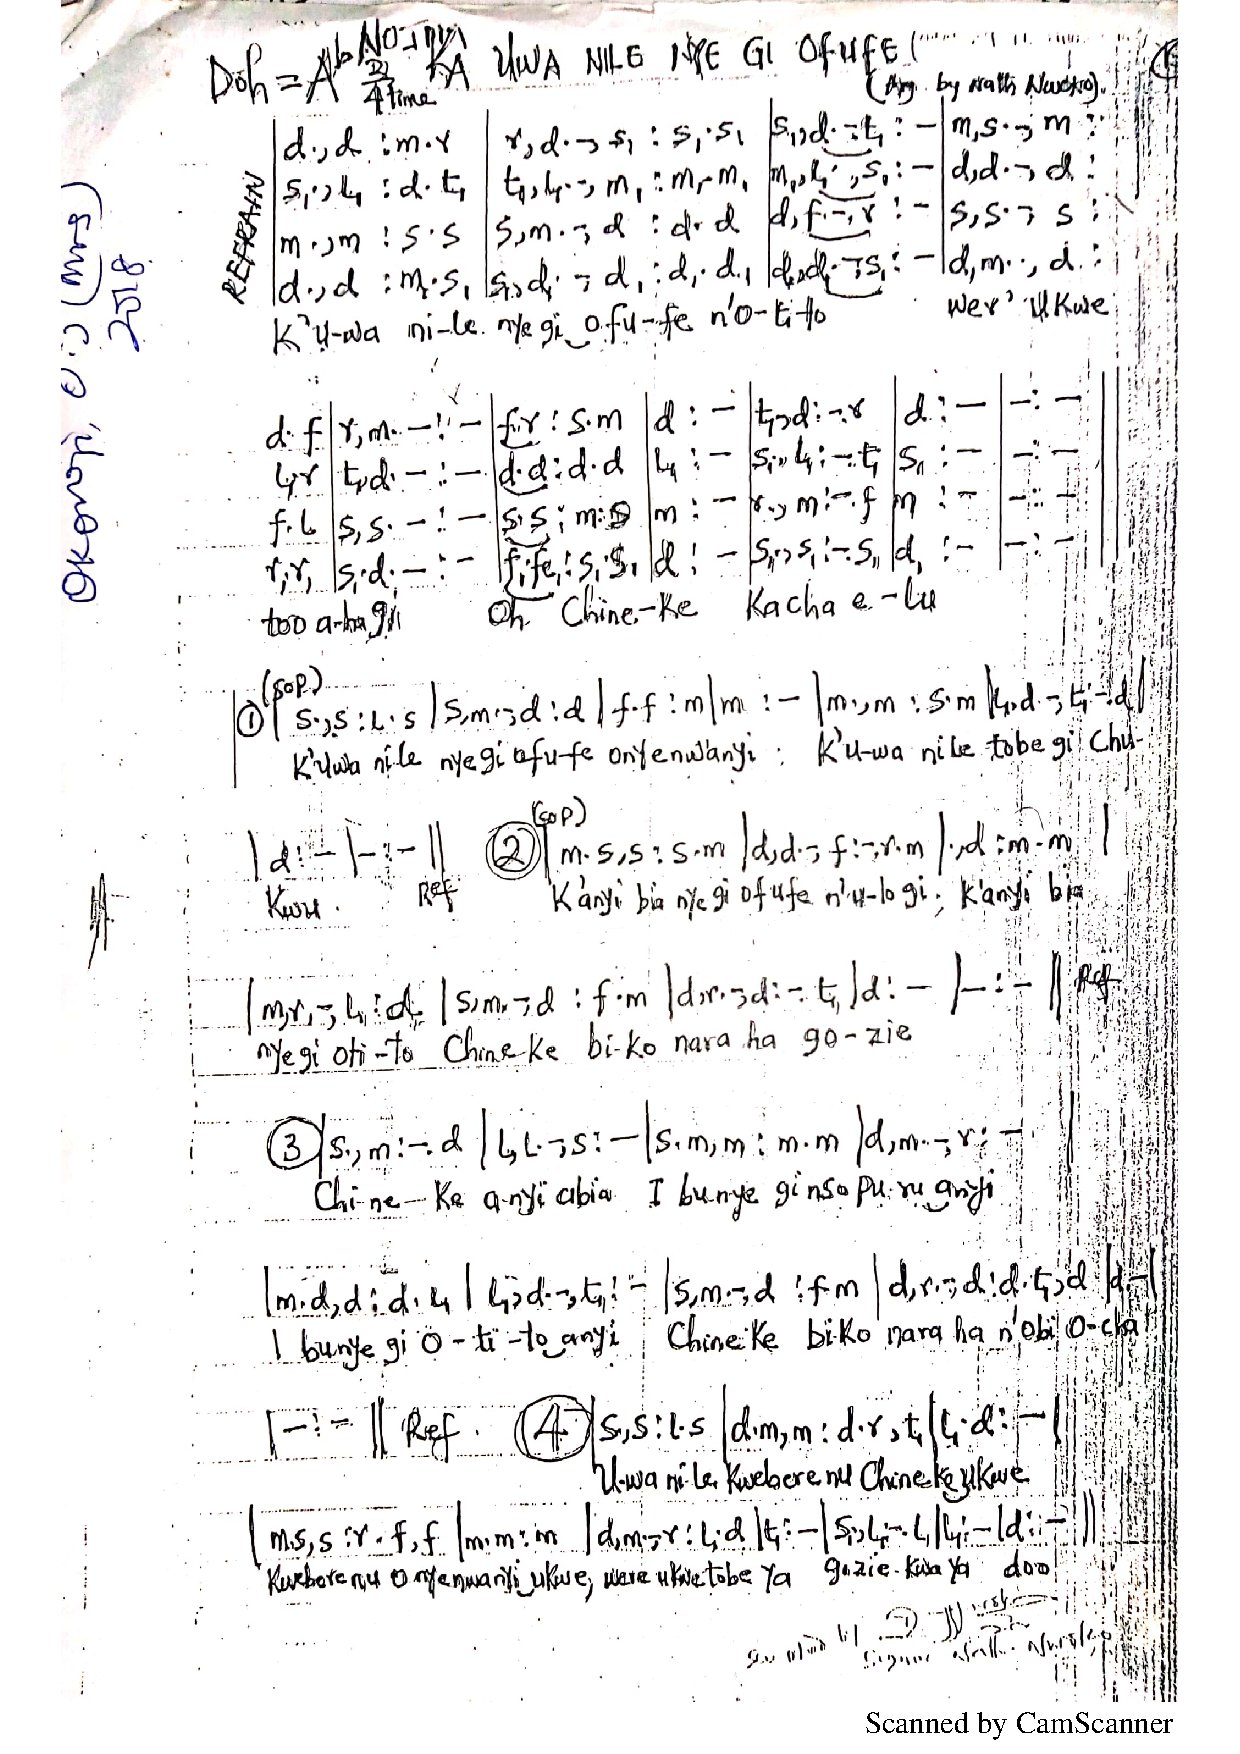 Doh = Ab 2/4 time KA UWA NILE NYE GI OFUFE
(Arr. by Nath Nwokro).
Okonoji, O. J (Mrs)
2018
REFRAIN
|d.,d :m.r |r,d.-,s₁ : s₁.s₁ |s₁,,d.-:t₁ : - |m,s.-,m :
s₁.,l₁ : d.t₁ |t₁,l₁.-,m₁ : m₁.m₁ |m₁,l₁.-,s₁ : - |d,d.-,d :
m.,m : s.s |s,m.-,d : d.d |d,f.-,r : - |s,s.-,s :
d.,d : m.s₁ |s₁,d₁.-,d₁ : d₁.d₁ |d₁,d₁.-,s₁ : - |d,m.-,d :
K'U-wa ni-le nye gi ofu-fe n'o-ti-to Wer' ukwe
d.f |r,m.-:- |f.r : s.m |d : - |t₁.,d:-.r |d : - |-:-
l₁.r |t₁,d.-:- |d.d : d.d |l₁ : - |s₁.,l₁:-.t₁ |s₁ : - |-:-
f.l |s,s.-:- |s.s : m.s |m : - |r.,m:-.f |m : - |-:-
r₁.r₁ |s₁.d.-:- |f₁.fe₁ : s₁.s₁ |d : - |s₁.,s₁:-.s₁ |d₁ : - |-:-
too a-ha gi Oh Chine-ke Kacha e-lu
(sop)
① |s.,s : l.s |s,m.-,d : d |f.f : m |m : - |m.,m : s.m |l₁,d.-,t₁:-.d|
K'uwa nile nye gi ofu-fe onyenwanyi; K'u-wa nile tobe gi Chu-
|d : - |-:-|| Ref
Kwu.
(sop)
② |m.s,s : s.m |d,d.-,f:-,r.m |.,d : m.m |
K'anyi bia nye gi ofufe n'u-lo gi; K'anyi bia
|m,r.-,l₁ : d |s,m.-,d : f.m |d,r.-,d:-.t₁ |d : - |-:-|| Ref
nye gi oti-to Chineke bi-ko nara ha go-zie
③ |s.,m:-.d |l,l.-,s : - |s.m,m : m.m |d,m.-,r : - |
Chi-ne-ke anyi abia I bunye gi nsopu.ru anyi
|m.d,d : d.l₁ |l₁,d.-,t₁ : - |s,m.-,d : f.m |d,r.-,d:d.t₁,d |d-|
I bunye gi o-ti-to anyi Chineke biko nara ha n'obi o-cha
|-:-|| Ref. ④ |s.,s : l.s |d.m,m : d.r,t₁ |l₁.d : -|
U-wa nile Kwebere nu Chineke ukwe
|m.s,s : r.f,f |m.m : m |d,m.-,r : l₁.d |t₁ : - |s₁.,l₁:-.l₁ |l₁ : - |d : -||
Kwebere nu onyenwanyi ukwe, were ukwe tobe Ya gozie. Kwa ya doo
Scanned by CamScanner